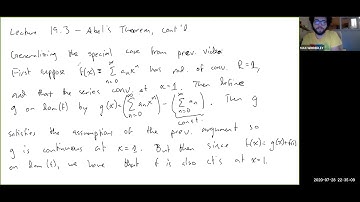 Lecture 19.3 – Abel's Theorem, cont'd
Generalizing the special case from prev. video
First suppose f(x) = ∑_{n=0}^{∞} a_n x^n has rad. of conv. R=1,
and that the series conv. at x=1. Then define
g on dom(f) by g(x) = (∑_{n=0}^{∞} a_n x^n) – (∑_{n=0}^{∞} a_n). Then g
const.
satisfies the assumption of the prev. argument so
g is continuous at x=1. But then since f(x) = g(x)+f(1)
on dom(f), we have that f is also cts at x=1.
2020-07-28 22:35:09